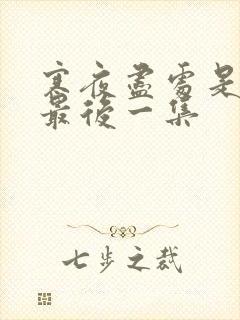 寒夜盡處是
最後一集
七步之裁